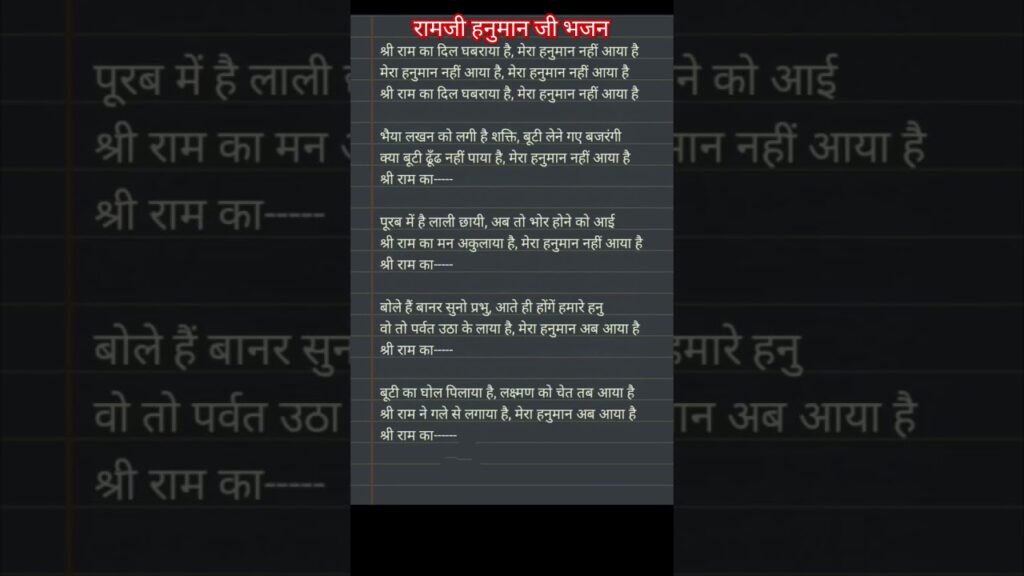 रामजी हनुमान जी भजन
श्री राम का दिल घबराया है, मेरा हनुमान नहीं आया है
मेरा हनुमान नहीं आया है, मेरा हनुमान नहीं आया है
श्री राम का दिल घबराया है, मेरा हनुमान नहीं आया है
भैया लखन को लगी है शक्ति, बूटी लेने गए बजरंगी
क्या बूटी ढूँढ नहीं पाया है, मेरा हनुमान नहीं आया है
श्री राम का-----
पूरब में है लाली छायी, अब तो भोर होने को आई
श्री राम का मन अकुलाया है, मेरा हनुमान नहीं आया है
श्री राम का-----
बोले हैं बानर सुनो प्रभु, आते ही होंगें हमारे हनु
वो तो पर्वत उठा के लाया है, मेरा हनुमान अब आया है
श्री राम का-----
बूटी का घोल पिलाया है, लक्ष्मण को चेत तब आया है
श्री राम ने गले से लगाया है, मेरा हनुमान अब आया है
श्री राम का------